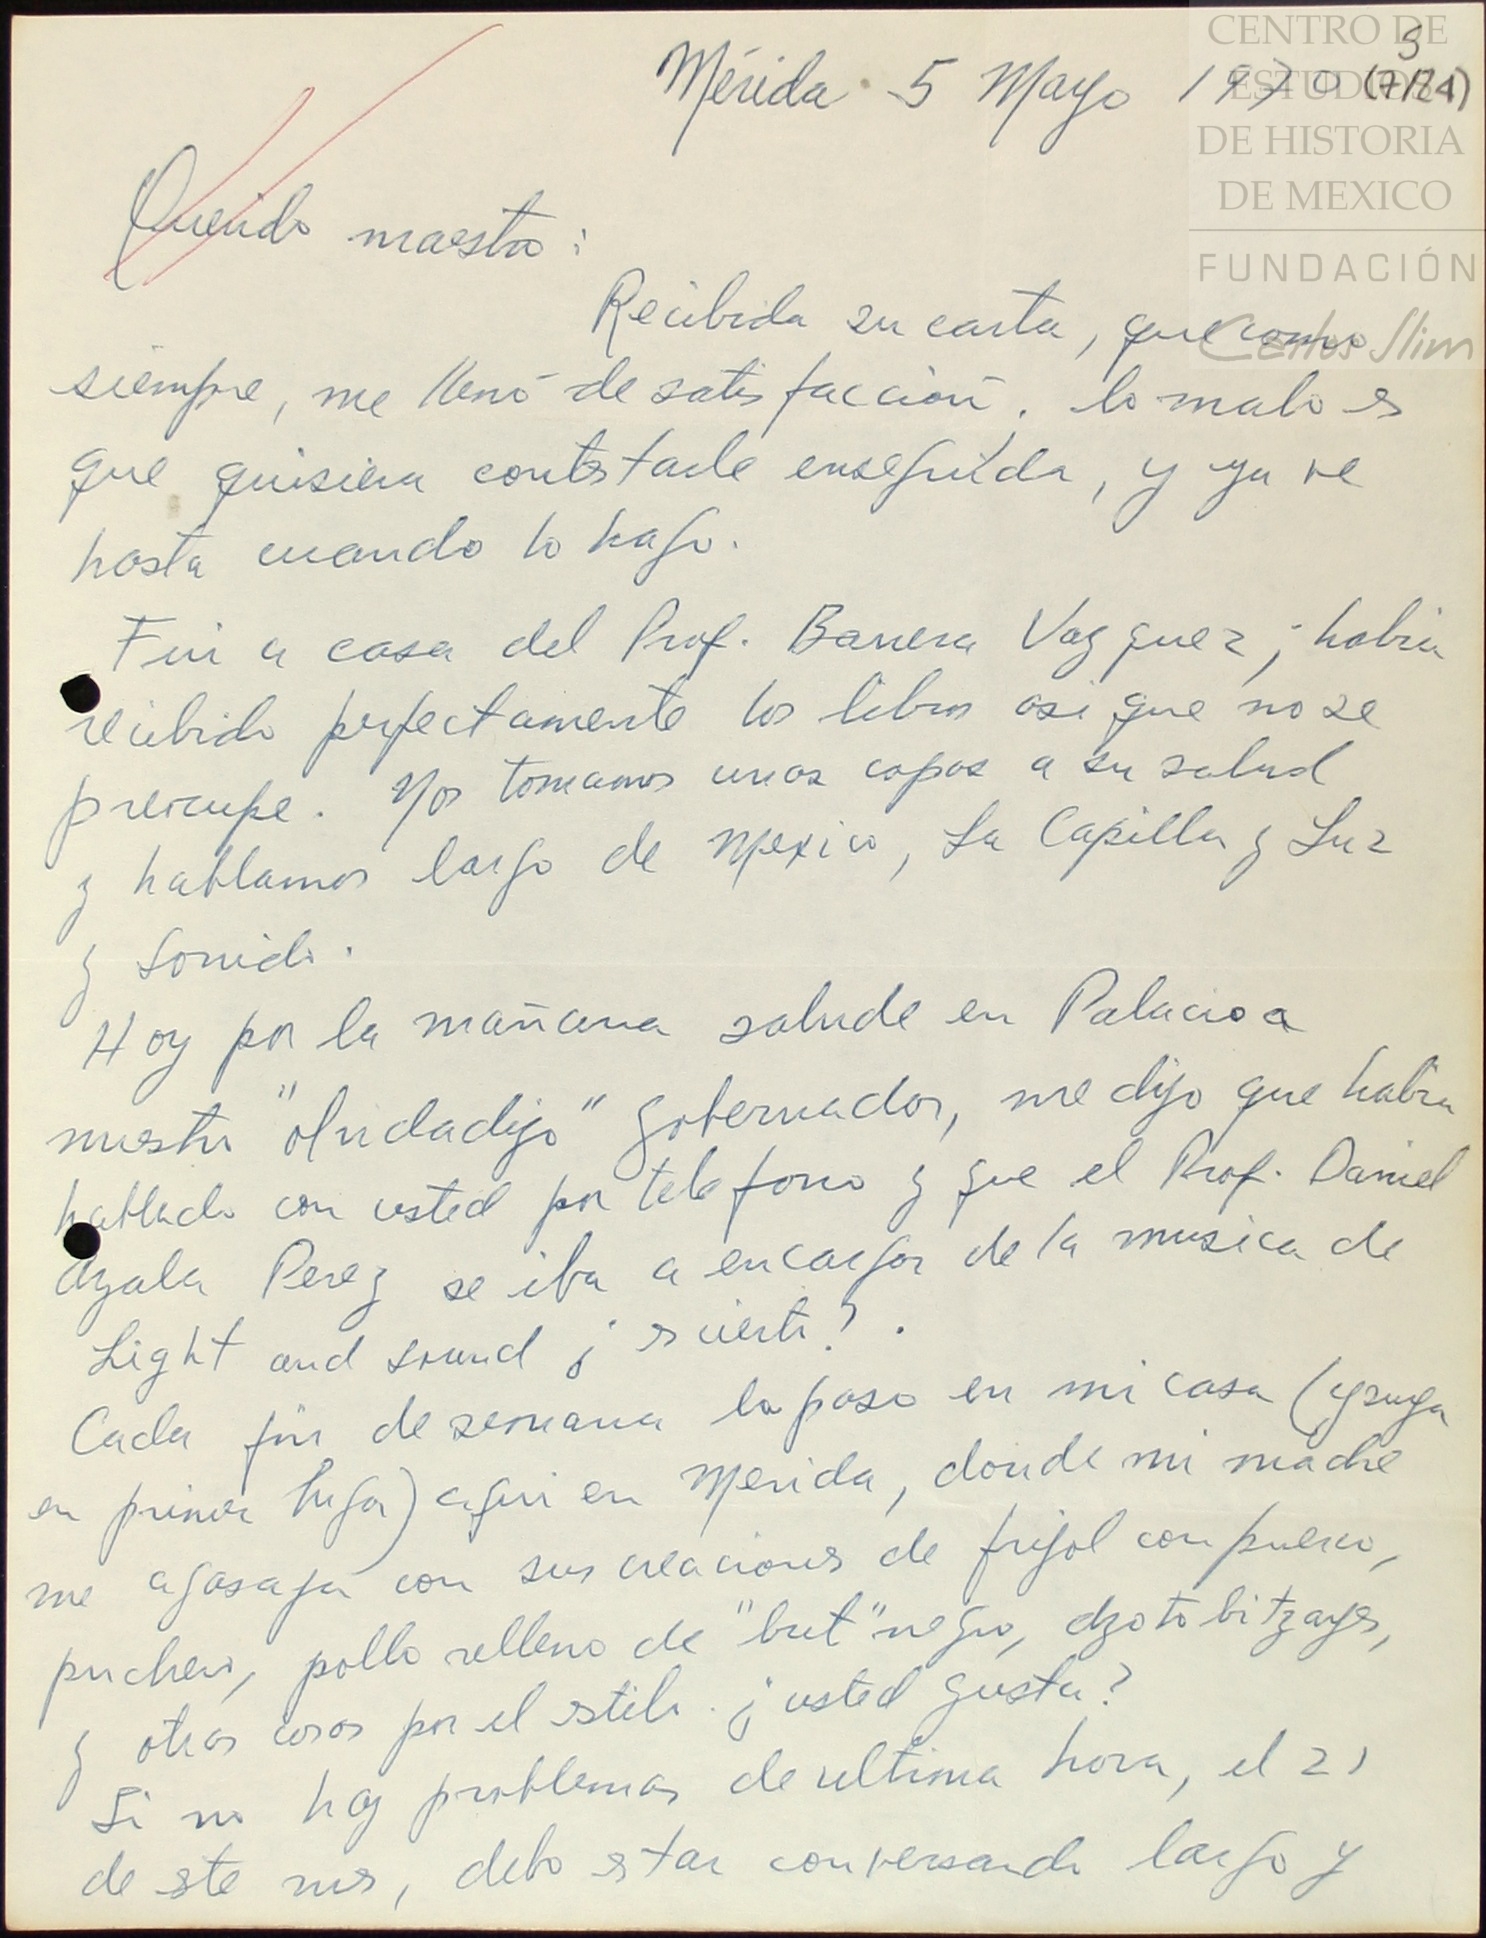 CENTRO DE
ESTUDIOS
DE HISTORIA
DE MEXICO
FUNDACIÓN
Carlos Slim
5
(7/24)
Mérida 5 Mayo 1970
Querido maestro:
Recibida su carta, que como
siempre, me llenó de satisfacción. lo malo es
que quisiera contestarle enseguida, y ya ve
hasta cuando lo hago.
Fui a casa del Prof. Barrera Vazquez; habia
recibido perfectamente los libros asi que no se
preocupe. Nos tomamos unas copas a su salud
y hablamos largo de Mexico, La Capilla y Luz
y Sonido.
Hoy por la mañana salude en Palacio a
nuestro "olvidadijo" gobernador, me dijo que habia
hablado con usted por telefono y que el Prof. Daniel
Ayala Perez se iba a encargar de la musica de
Light and sound ¿es cierto?.
Cada fin de semana lo paso en mi casa (y suya
en primer lugar) aqui en Merida, donde mi madre
me agasaja con sus creaciones de frijol con puerco,
puchero, pollo relleno de "but" negro, dzotobitzayes,
y otras cosas por el estilo. ¿usted gusta?
Si no hay problemas de ultima hora, el 21
de este mes, debo estar conversando largo y